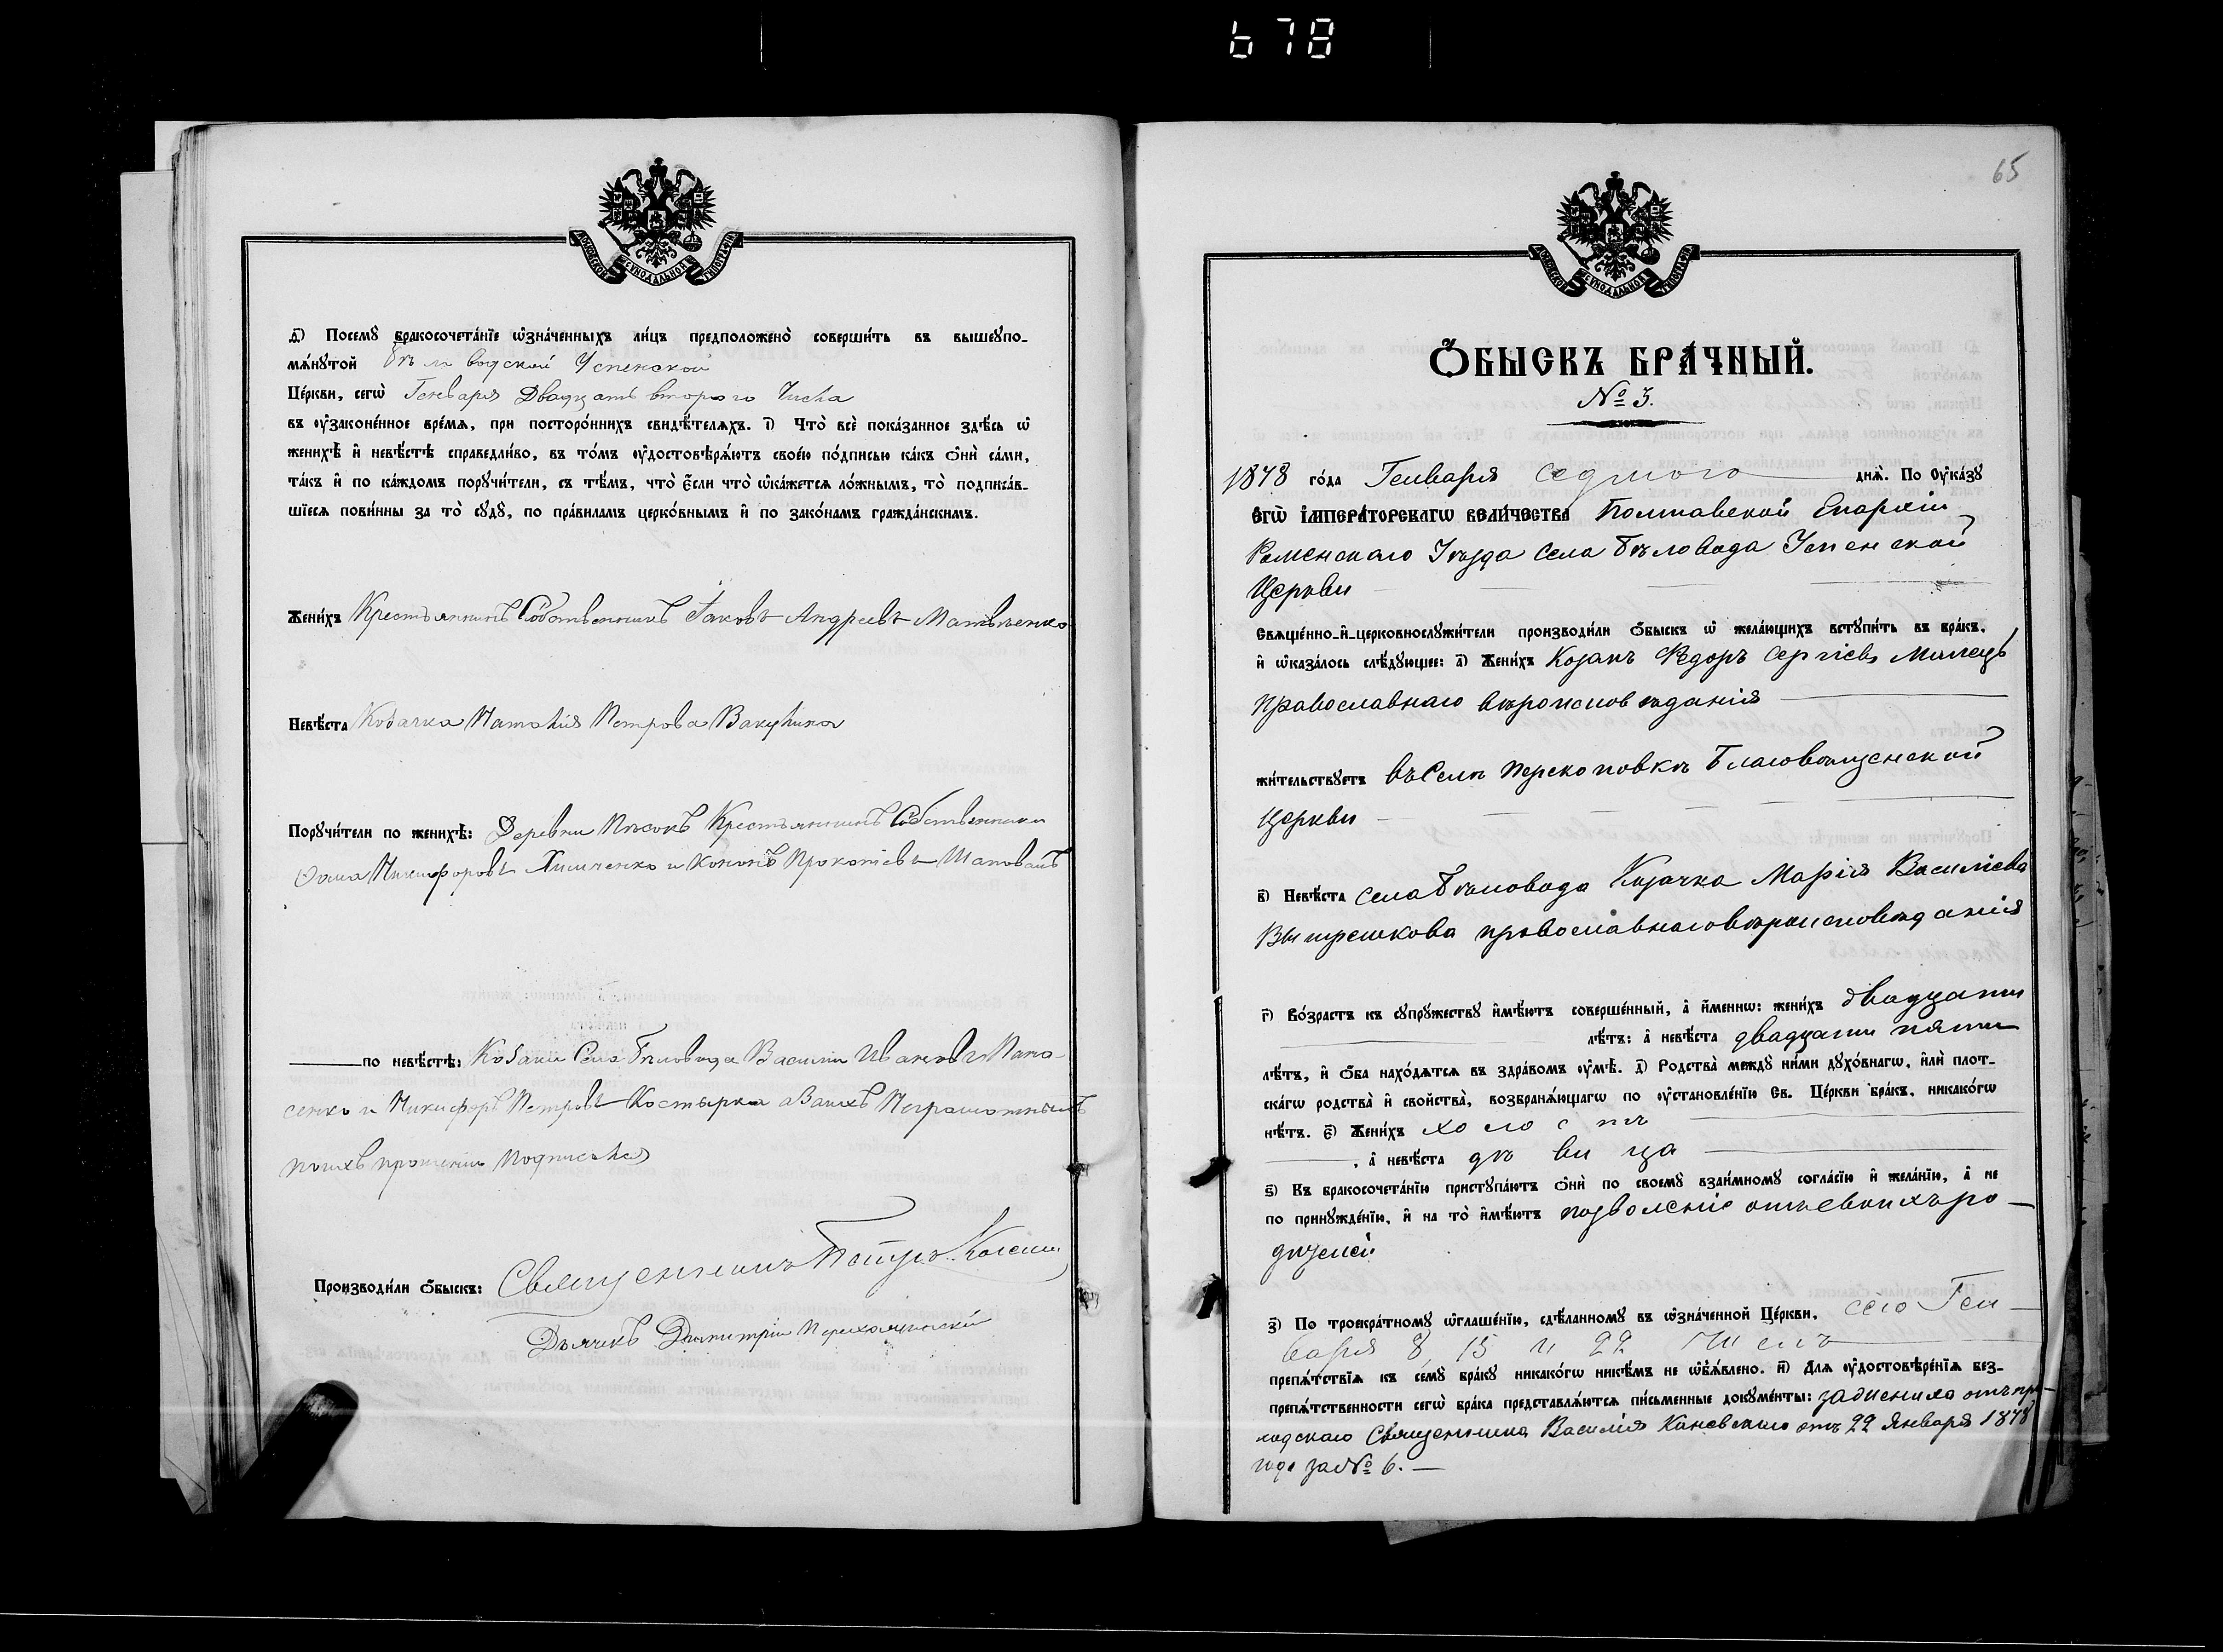 678
МОСКОВСКОЙ СѴНОДАЛЬНОЙ ТИПОГРАФІИ
д҃) Посемꙋ̀ бракосочета́нїе ѡ҆зна́ченныхъ ли́цъ предположено̀ соверши́ть въ вышеꙋпо-
мѧ́нꙋтой Бѣловодской Успенской
Це́ркви, сегѡ̀ Генваря Двадцать второго Числа
въ ᲂу҆законе́нное вре́мѧ, при посторо́ннихъ свидѣ́телѧхъ. і҃) Что̀ всѐ пока́занное здѣ́сь ѡ҆
женихѣ̀ и҆ невѣ́стѣ справедли́во, въ то́мъ ᲂу҆достовѣрѧ́ютъ свое́ю по́дписью ка́къ ѻ҆нѝ са́ми,
та́къ и҆ по ка́ждомъ порꙋчи́тели, съ тѣ́мъ, что̀ є҆́сли что̀ ѡ҆ка́жетсѧ ло́жнымъ, то̀ подписа́в-
шїесѧ пови́нны за то̀ сꙋдꙋ̀, по пра́виламъ церко́внымъ и҆ по зако́намъ гражда́нскимъ.
Жени́хъ Крестьянинъ Собственникъ Іаковъ Андреевъ Матвѣенко
Невѣ́ста Козачка Наталія Петрова Вакулика
Порꙋчи́тели по женихѣ̀: Деревни Пѣсокъ Крестьянинъ Собственники
Ѳома Никифоровъ Химченко и Кононъ Прокопіевъ Шаповалъ
по невѣ́стѣ: Козаки Села Бѣловода Василій Ивановъ Пана-
сенко и Никифоръ Петровъ Костырка а Заихъ Неграмотныхъ
поихъ прошенію Подписался
Производи́ли ѻ҆́быскъ: Священникъ Петръ
Дьячекъ Димитрій
65
МОСКОВСКОЙ СѴНОДАЛЬНОЙ ТИПОГРАФІИ
Ѻ҆́БЫСКЪ БРА́ЧНЫЙ.
№ 3.
1878 го́да Генваря седмого днѧ̀. По ᲂу҆ка́зꙋ
Є҆гѡ̀ І҆мпера́торскагѡ Вели́чества Полтавской Епархіи
Роменскаго Уѣзда Села Бѣловода Успенской
Церкви
Свѧще́нно-и҆-церковнослꙋжи́тели производи́ли ѻ҆́быскъ ѡ҆ жела́ющихъ встꙋпи́ть въ бра́къ,
и҆ ѡ҆каза́лось слѣ́дꙋющее: а҃) Жени́хъ Козакъ Ѳедоръ Сергіевъ Милецъ
Православнаго вѣроисповѣданія
жи́тельствꙋетъ въ Селѣ Перекоповкѣ Благовѣщенской
Церкви
в҃) Невѣ́ста Села Бѣловода Козачка Марія Василіева
Вытрешкова православнаго вѣроисповѣданія
г҃) Во́зрастъ къ сꙋпрꙋ́жествꙋ и҆мѣ́ютъ соверше́нный, а҆ и҆́меннѡ: жени́хъ двадцати
лѣ́тъ: а҆ невѣ́ста двадцати пяти
лѣ́тъ, и҆ ѻ҆́ба нахо́дѧтсѧ въ здра́вомъ ᲂу҆мѣ̀. д҃) Родства̀ междꙋ̀ ни́ми дꙋхо́внагѡ, и҆лѝ плот-
ска́гѡ родства̀ и҆ сво́йства̀, возбранѧ́ющагѡ по ᲂу҆становле́нїю Св. Це́ркви бра́къ, никако́гѡ
нѣ́тъ. є҃) Жени́хъ холостъ
, а҆ невѣ́ста дѣвица
ѕ҃) Къ бракосочета́нїю пристꙋпа́ютъ ѻ҆нѝ по своемꙋ̀ взаи́мномꙋ согла́сїю и҆ жела́нїю, а҆ не
по принꙋжде́нїю, и҆ на то̀ и҆мѣ́ютъ позволеніе отъ своихъ ро-
дителей
з҃) По троекра́тномꙋ ѡ҆глаше́нїю, сдѣ́ланномꙋ въ ѡ҆зна́ченной Це́ркви, сего Ген-
варя 8, 15 и 22 Числъ
препѧ́тствїѧ къ семꙋ̀ бра́кꙋ никако́гѡ никѣ́мъ не ѡ҆б̾ѧ́влено. и҃) Длѧ̀ ᲂу҆достовѣре́нїѧ без-
препѧ́тственности сегѡ̀ бра́ка представлѧ́ютсѧ пи́сьменные докꙋме́нты: за жениха отъ при-
ходскаго Священника Василія Каневскаго отъ 22 Января 1878
года за № 6.